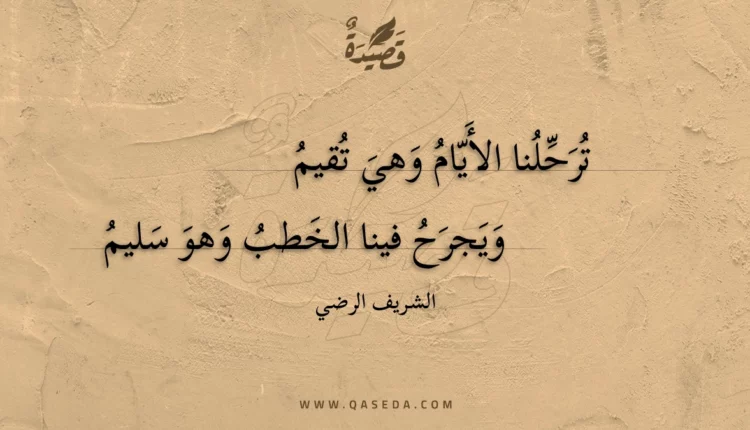 قَصِيدَةٌ
تُرَحِّلُنا الأَيّامُ وَهيَ تُقيمُ
وَيَجرَحُ فينا الخَطبُ وَهوَ سَليمُ
الشريف الرضي
WWW.QASEDA.COM